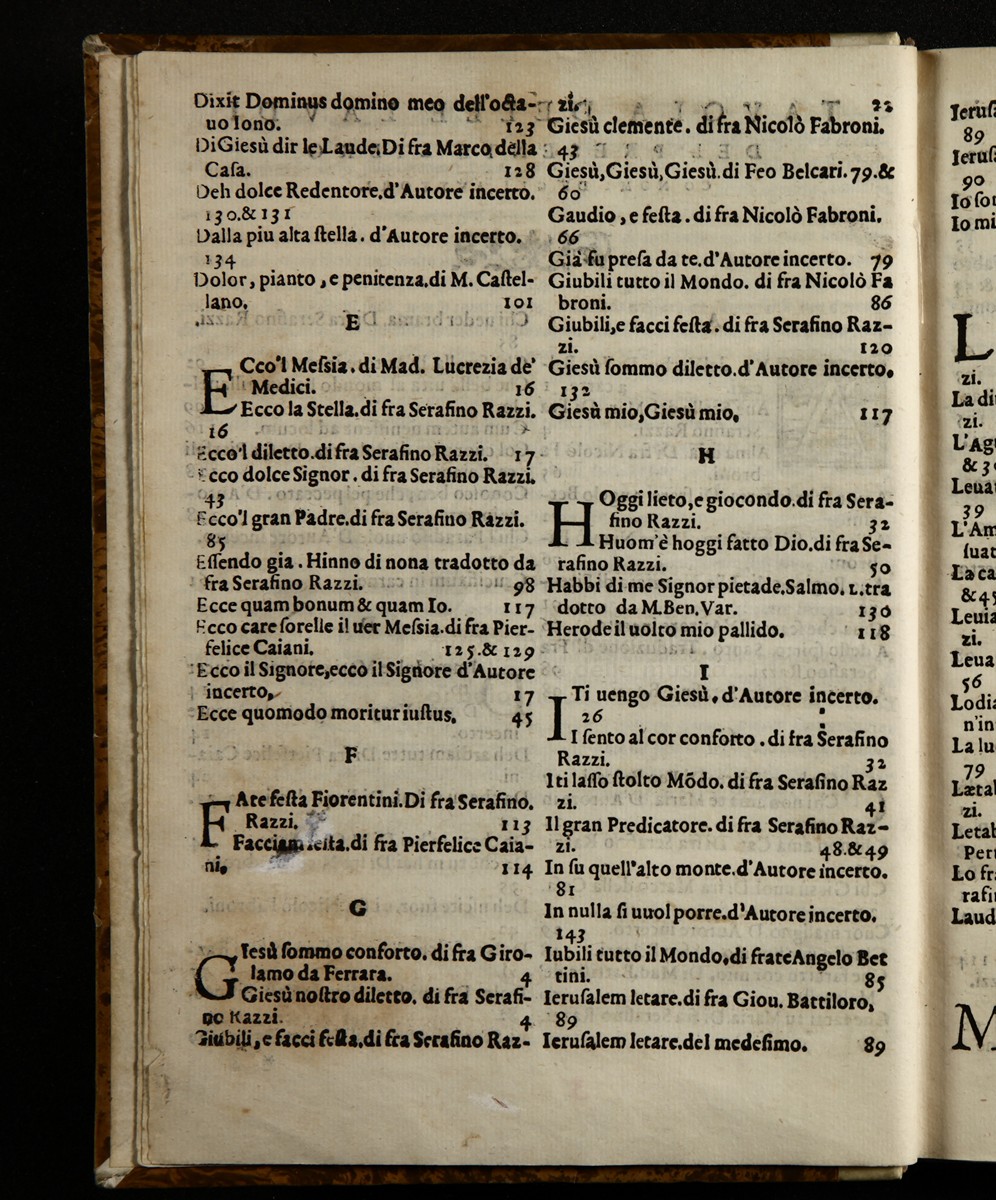 Dixit Dominus domino meo dell'otta-
uo Iono. 123
Di Giesù dir le Laude, Di fra Marco della
Casa. 128
Deh dolce Redentore. d'Autore incerto.
130. & 131
Dalla piu alta stella. d'Autore incerto.
134
Dolor, pianto, e penitenza. di M. Castel-
lano. 101
E
ECco'l Messia. di Mad. Lucrezia de'
Medici. 16
Ecco la Stella. di fra Serafino Razzi.
16
Ecco'l diletto. di fra Serafino Razzi. 17
Ecco dolce Signor. di fra Serafino Razzi.
43
Ecco'l gran Padre. di fra Serafino Razzi.
85
Essendo gia. Hinno di nona tradotto da
fra Serafino Razzi. 98
Ecce quam bonum & quam Io. 117
Ecco care sorelle il uer Messia. di fra Pier-
felice Caiani. 125. & 129
Ecco il Signore, ecco il Signore d'Autore
incerto, 17
Ecce quomodo moritur iustus. 45
F
FAte festa Fiorentini. Di fra Serafino.
Razzi. 113
Facciam festa. di fra Pierfelice Caia-
ni. 114
G
GIesù sommo conforto. di fra Giro-
lamo da Ferrara. 4
Giesù nostro diletto. di fra Serafi-
no Razzi. 4
Giubili, e facci festa. di fra Serafino Raz-
zi. 22
Giesù clemente. di fra Nicolò Fabroni.
43
Giesù, Giesù, Giesù. di Feo Belcari. 79. &
60
Gaudio, e festa. di fra Nicolò Fabroni.
66
Già fu presa da te. d'Autore incerto. 79
Giubili tutto il Mondo. di fra Nicolò Fa
broni. 86
Giubili, e facci festa. di fra Serafino Raz-
zi. 120
Giesù sommo diletto. d'Autore incerto.
132
Giesù mio, Giesù mio. 117
H
HOggi lieto, e giocondo. di fra Sera-
fino Razzi. 32
Huom'è hoggi fatto Dio. di fra Se-
rafino Razzi. 50
Habbi di me Signor pietade. Salmo. L. tra
dotto da M. Ben. Var. 130
Herode il uolto mio pallido. 118
I
ITi uengo Giesù. d'Autore incerto.
26
I sento al cor conforto. di fra Serafino
Razzi. 32
Iti lasso stolto Mõdo. di fra Serafino Raz
zi. 41
Il gran Predicatore. di fra Serafino Raz-
zi. 48. & 49
In su quell'alto monte. d'Autore incerto.
81
In nulla si uuol porre. d'Autore incerto.
143
Iubili tutto il Mondo. di frate Angelo Bet
tini. 85
Ierusalem letare. di fra Giou. Battiloro.
89
Ierusalem letare. del medesimo. 89
89
90
zi.
La di
zi.
L'Ag
Leua
39
L'Am
La ca
& 45
Leuia
zi.
Leua
56
Lodia
n'in
La lu
79
zi.
Letab
Lo fr
rafi
Laud
M